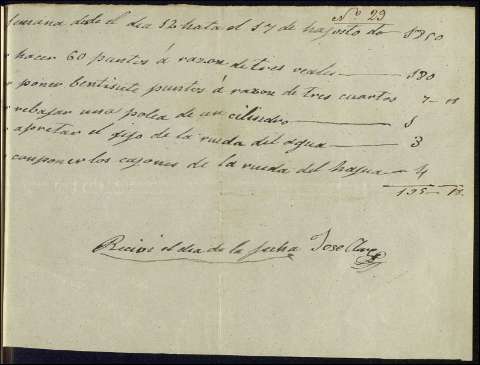 Nº 23
semana dede el dia 12 hata el 17 de hagosto de 1850
hacer 60 puntos á razon de tres reales 180
poner bentisiete puntos á razon de tres cuartos 7
rebajar una polea de un cilindro 1
apretar el fijo de la rueda del agua 3
conponer los cajones de la rueda del hagua 4
195
Recivi el dia de la fecha Jose